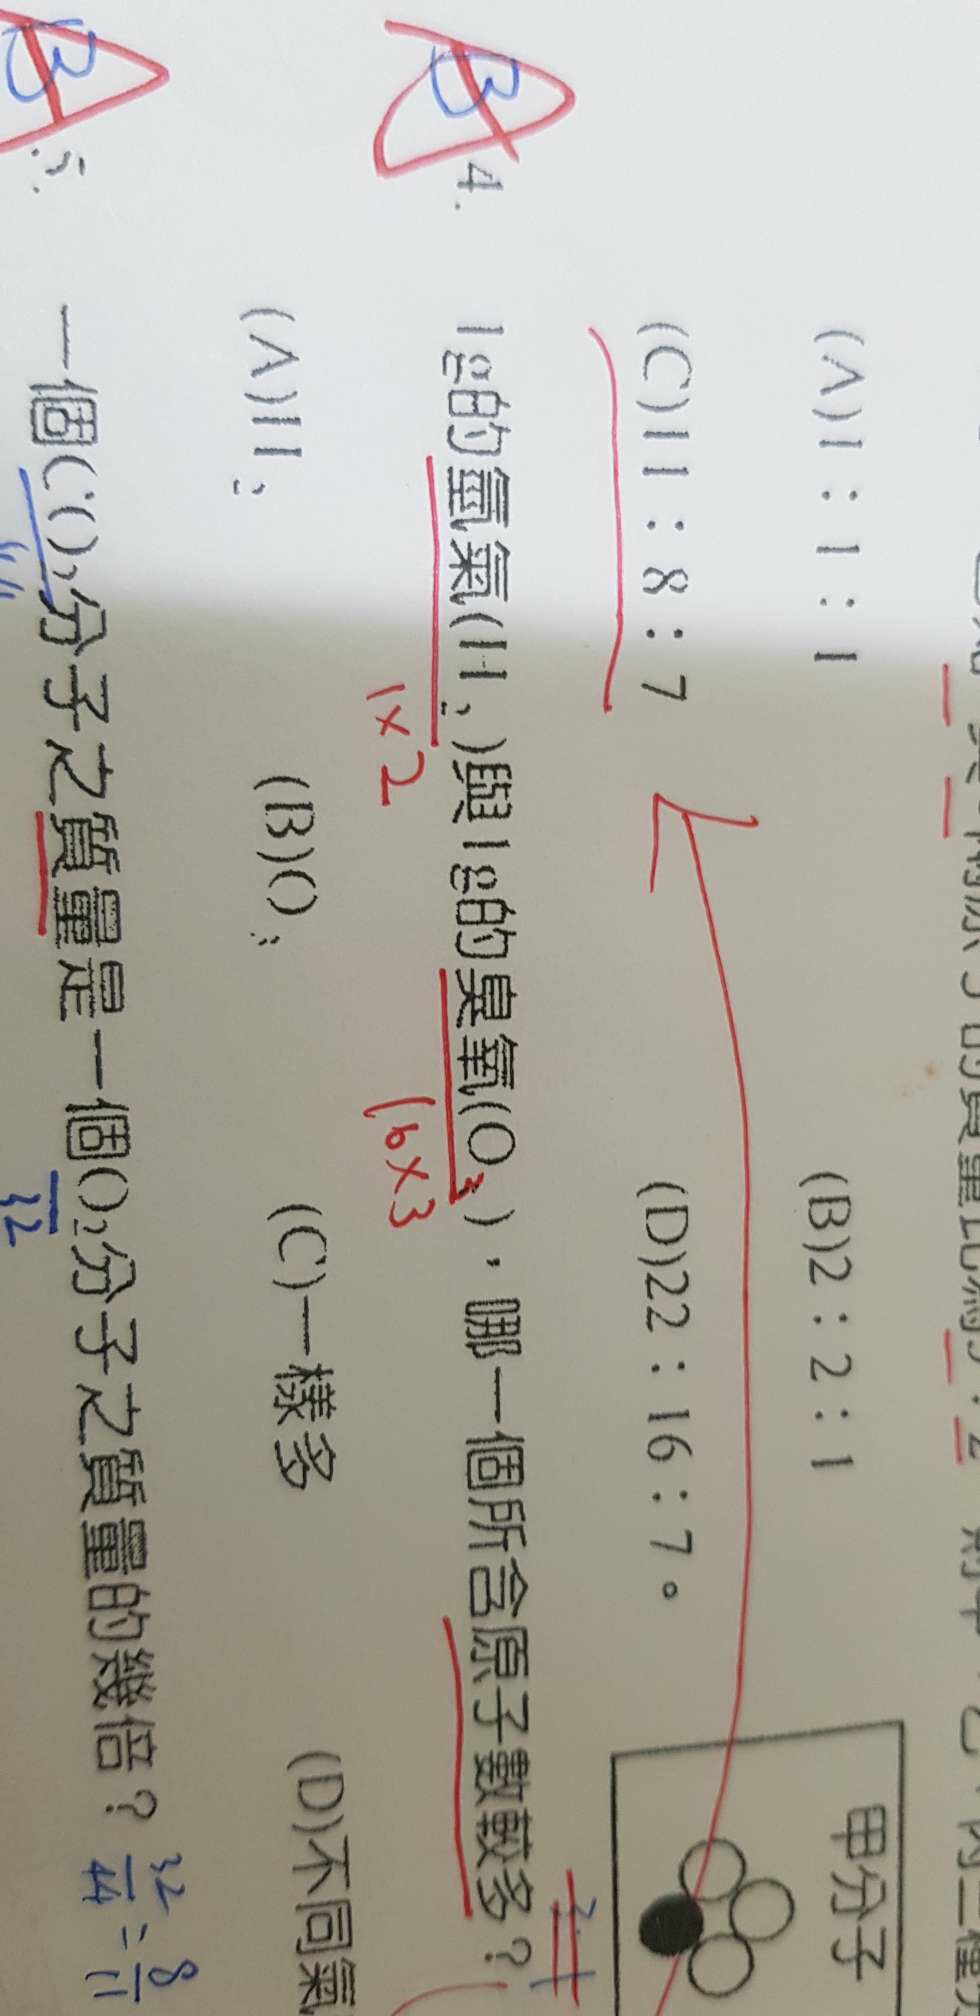 的質量比為
(A)1：1：1 (B)2：2：1
甲分子
(C)11：8：7 (D)22：16：7。
B 4. 1g的氫氣(H₂)與1g的臭氧(O₃)，哪一個所含原子數較多？
1×2 16×3
(A)H₂ (B)O₃ (C)一樣多 (D)不同氣
B 5. 一個CO₂分子之質量是一個O₂分子之質量的幾倍？
44 32
32/44 = 8/11